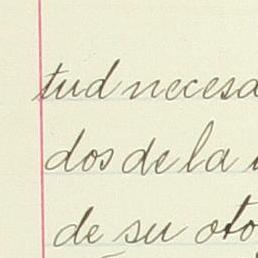 tud necesa
dos de la
de su oto